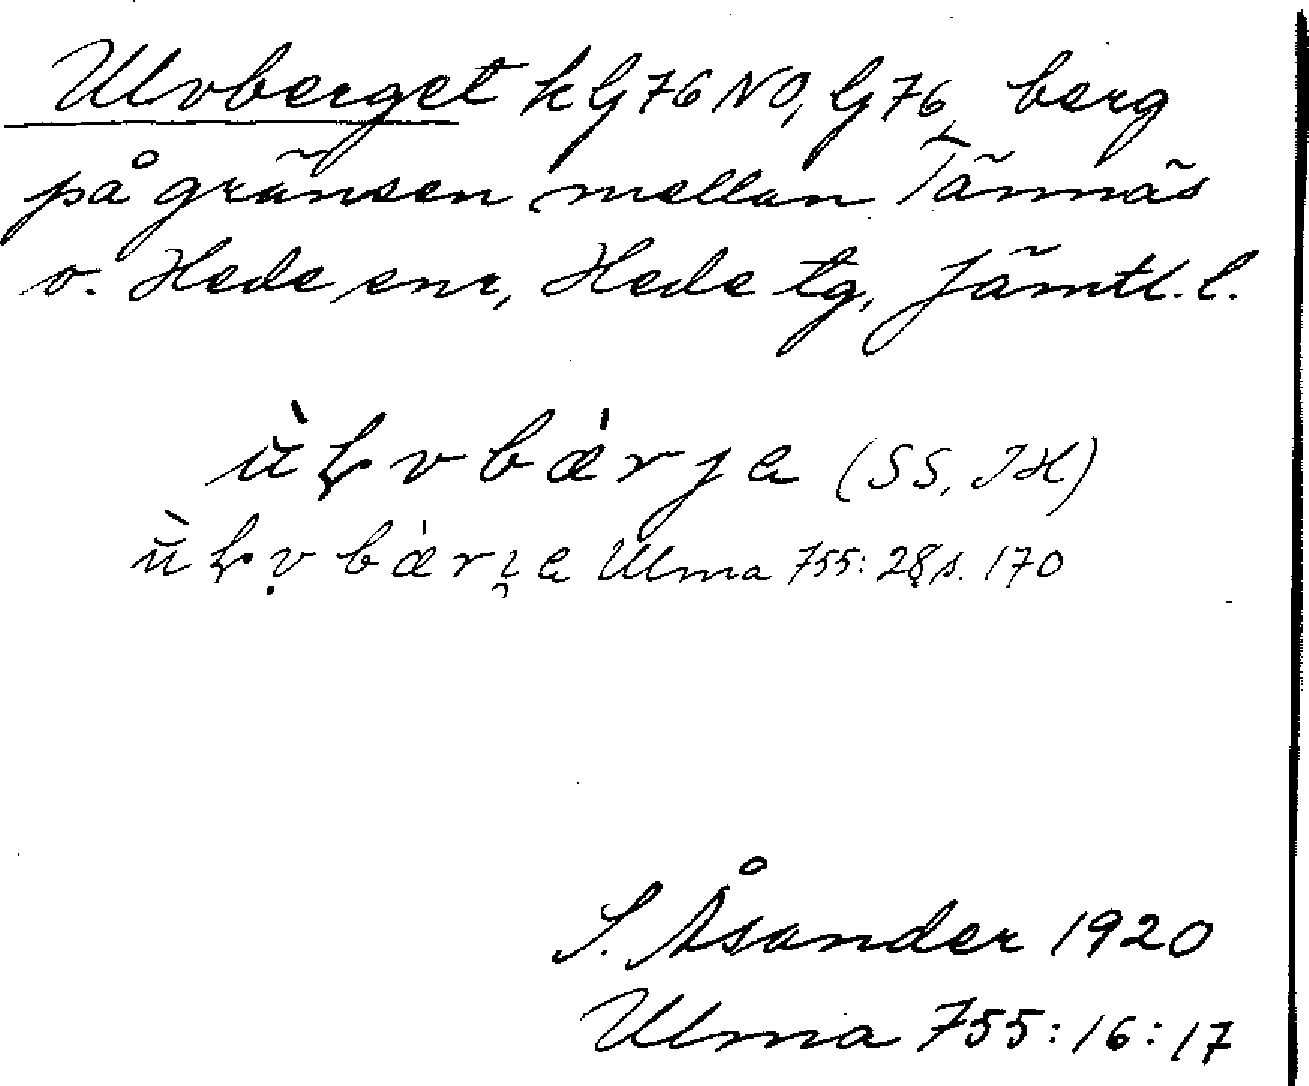 Ulvberget k G 76 NO, G 76, berg
på gränsen mellan Tännäs
o. Hede snr, Hede tg, Jämtl. l.
(SS, JH)
Ulma 755:28 s. 170
S. Åsander 1920
Ulma 755:16:17